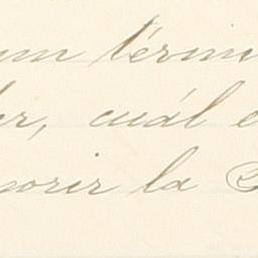 un térmi
er, cuál e
orir la